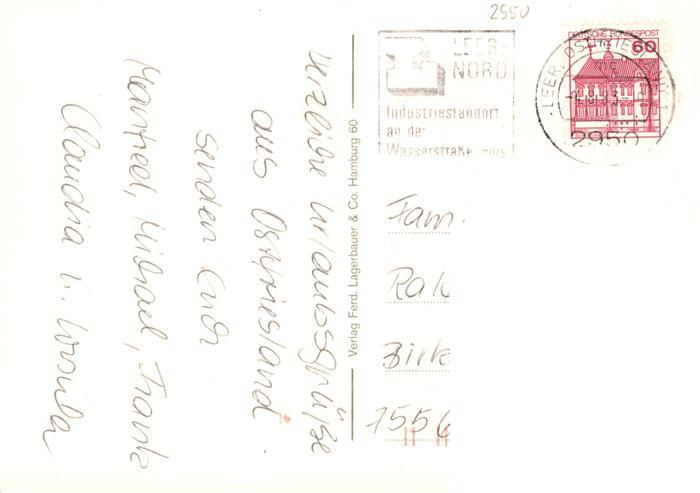 herzliche Urlaubsgrüße
aus Ostfriesland
senden Euch
Manfred, Michael, Frank
Claudia u. Ursula
Verlag Ferd. Lagerbauer & Co. Hamburg 60
2950
LEER-
NORD
Industriestandort
an der
Wasserstraße
DEUTSCHE BUNDESPOST
60
LEER, OSTFRIESLAND
2950
Fam.
Ral
Birk
7556